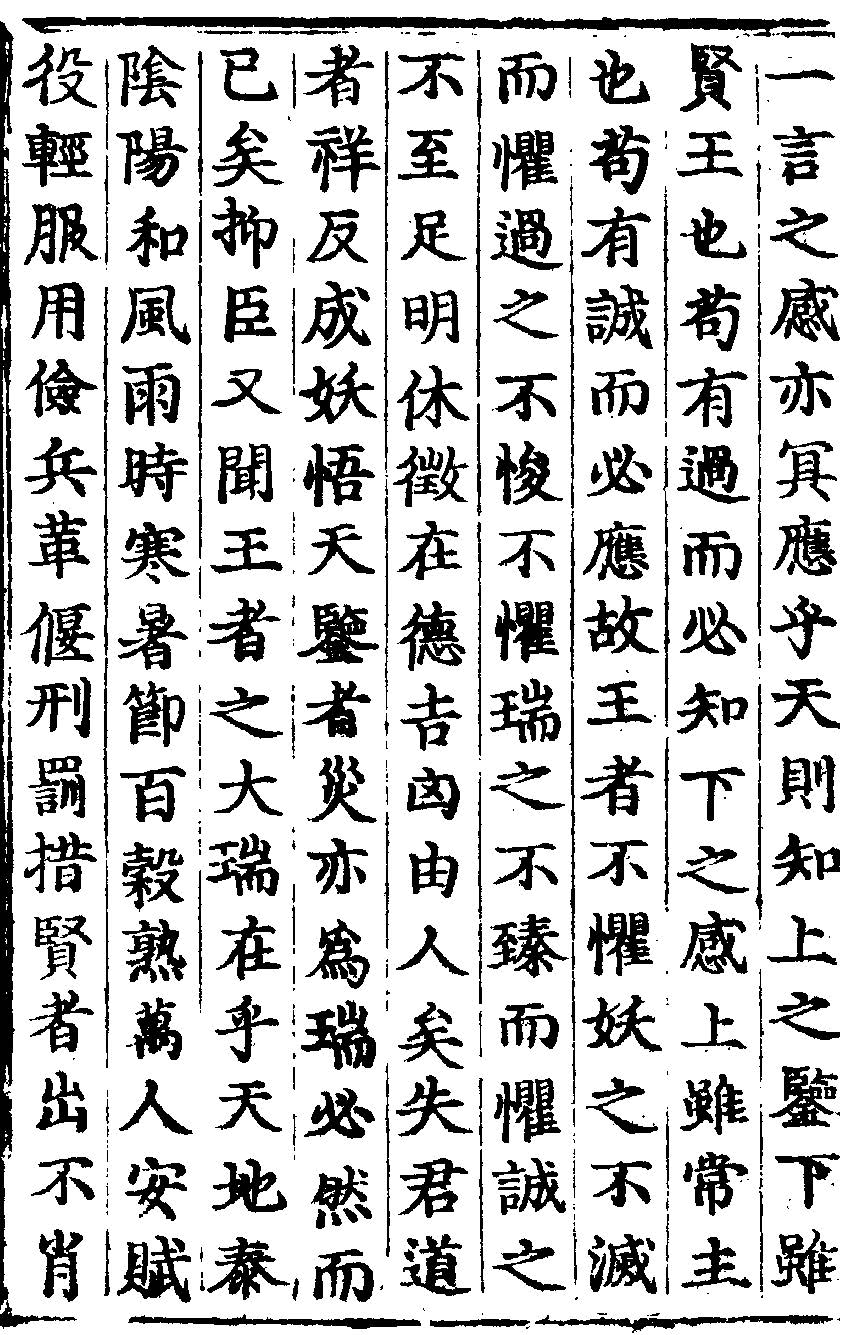 一言之感亦冥應乎天則知上之鑒下雖
賢王也苟有過而必知下之感上雖常主
也苟有誠而必應故王者不懼妖之不滅
而懼過之不悛不懼瑞之不臻而懼誠之
不至足明休徵在德吉凶由人矣失君道
者祥反成妖悟天鑒者災亦爲瑞必然而
已矣抑臣又聞王者之大瑞在乎天地泰
陰陽和風雨時寒暑節百穀熟萬人安賦
役輕服用儉兵革偃刑罰措賢者出不肖